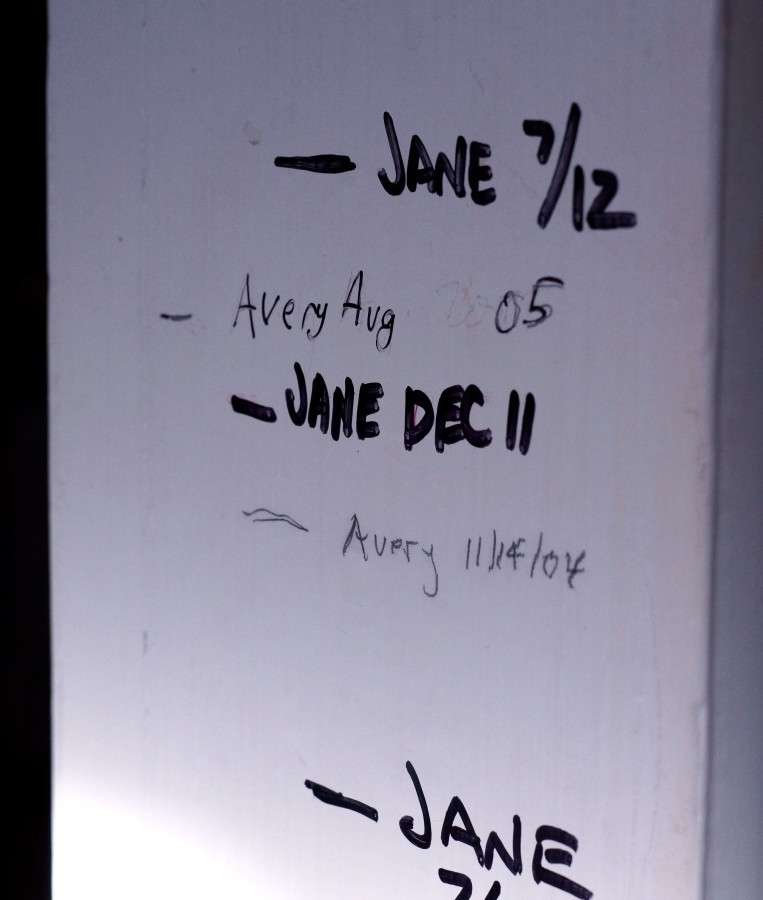 - JANE 7/12
- Avery Aug 05
- JANE DEC 11
Avery 11/14/04
- JANE